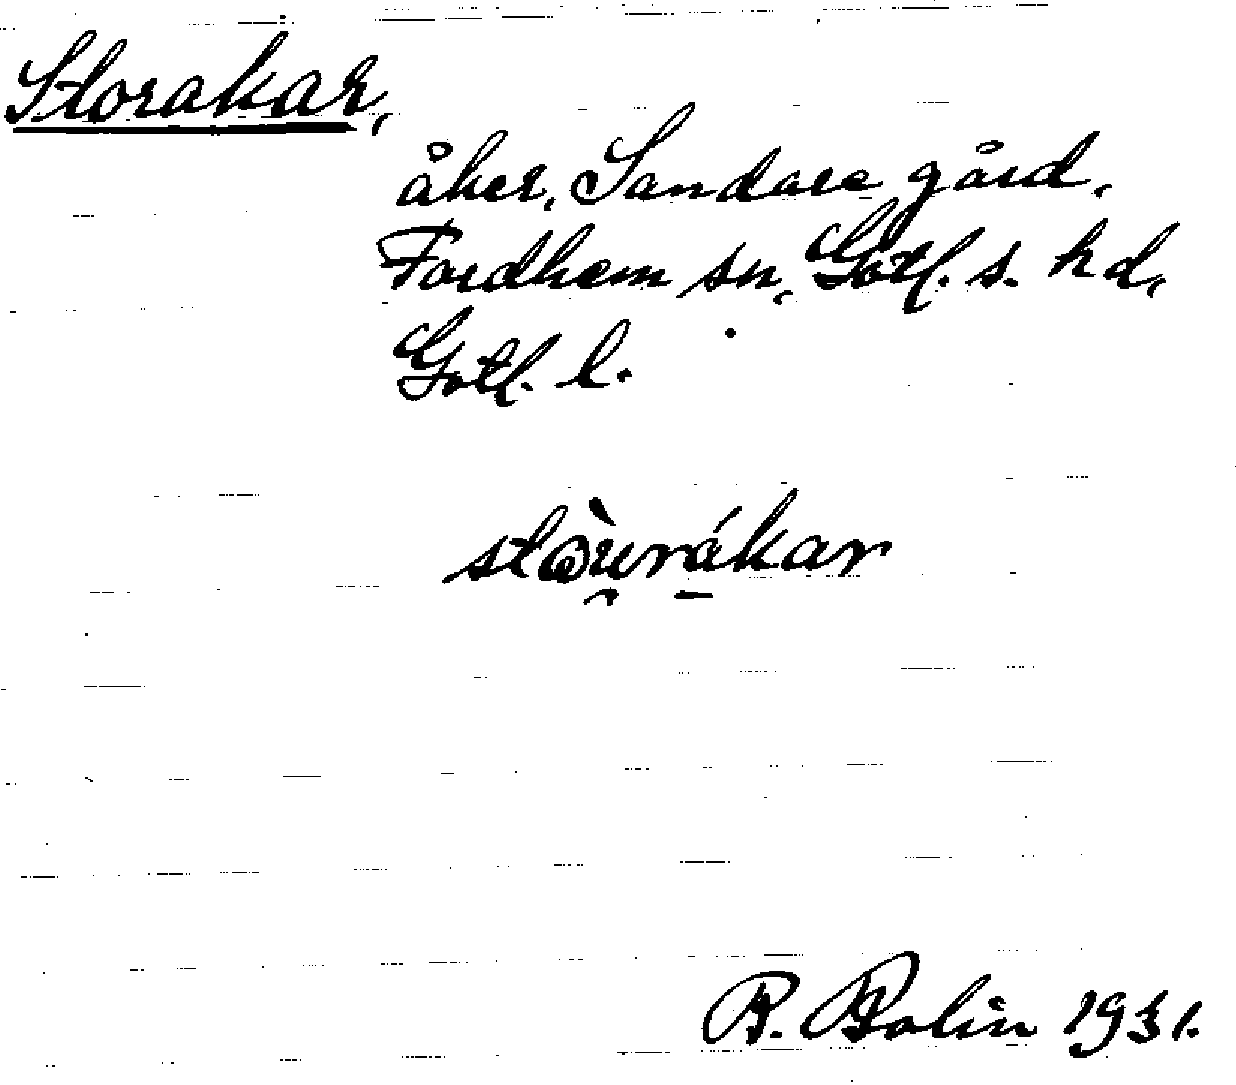 Storakar,
åker, Sandare gård,
Fardhem sn, Gotl. s. hd,
Gotl. l.
R. Bolin 1931.